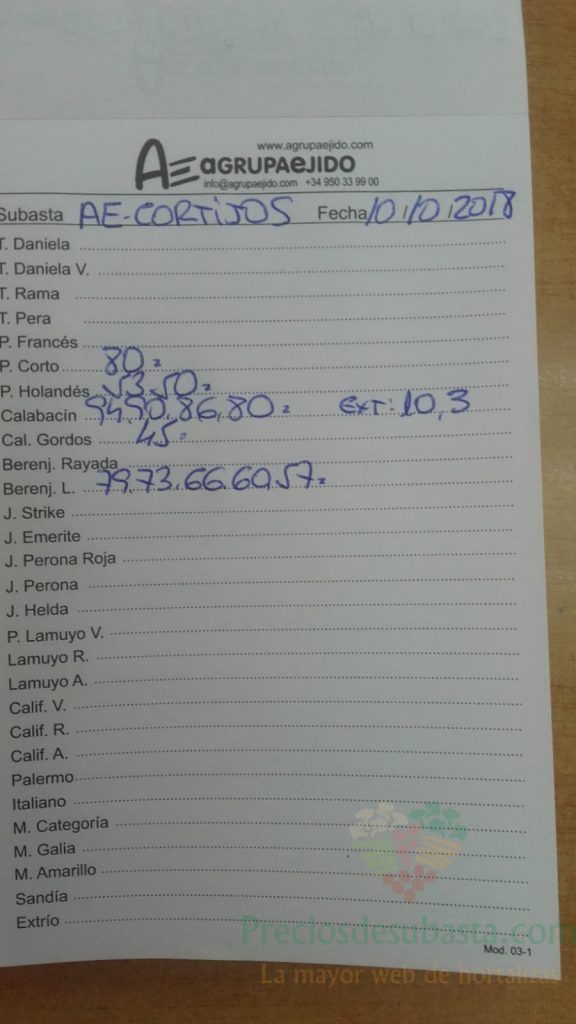 www.agrupaejido.com
AE AGRUPAEJIDO
info@agrupaejido.com +34 950 33 99 00
Subasta AE-CORTIJOS Fecha 10/10/2018
T. Daniela
T. Daniela V.
T. Rama
T. Pera
P. Francés
P. Corto 80=
P. Holandés 53.50=
Calabacín 94.90.86.80= EXT: 10,3
Cal. Gordos 45=
Berenj. Rayada
Berenj. L. 79.73.66.60.57=
J. Strike
J. Emerite
J. Perona Roja
J. Perona
J. Helda
P. Lamuyo V.
Lamuyo R.
Lamuyo A.
Calif. V.
Calif. R.
Calif. A.
Palermo
Italiano
M. Categoría
M. Galia
M. Amarillo
Sandía
Extrío
Preciosdesubasta.com
Mod. 03-1
La mayor web de hortalizas